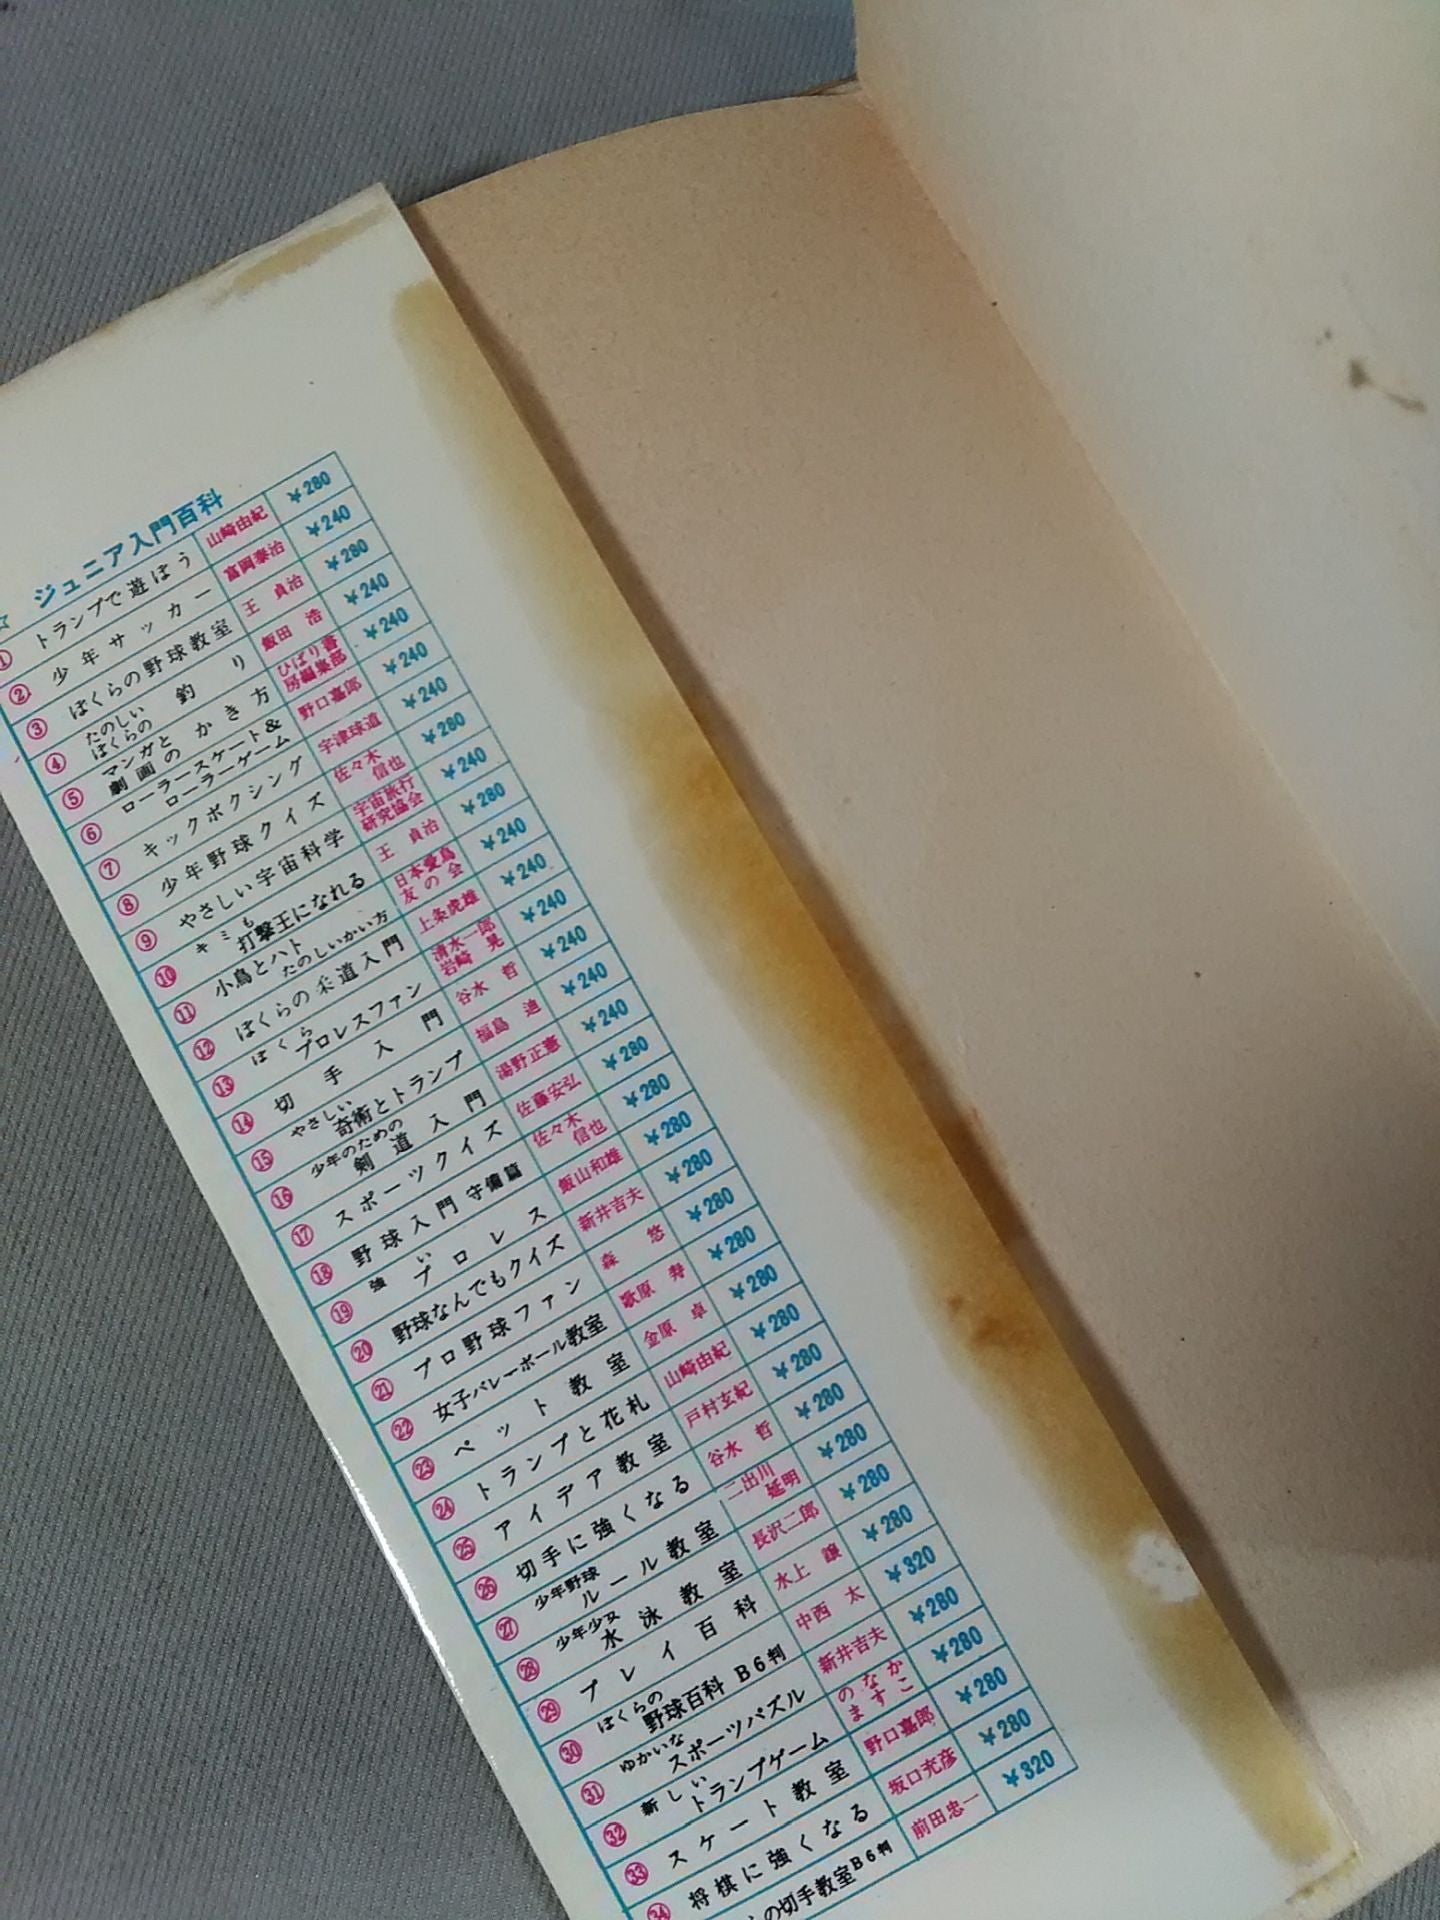 ☆ ジュニア入門百科
① トランプで遊ぼう 山崎由紀 ¥280
② 少年サッカー 富岡泰治 ¥240
③ ぼくらの野球教室 王貞治 ¥280
④ たのしいぼくらの釣り 飯田浩 ¥240
⑤ マンガと劇画のかき方 ひばり書房編集部 ¥240
⑥ ローラースケート&ローラーゲーム 野口嘉郎 ¥240
⑦ キックボクシング 宇津球道 ¥240
⑧ 少年野球クイズ 佐々木信也 ¥280
⑨ やさしい宇宙科学 宇宙旅行研究協会 ¥240
⑩ キミも打撃王になれる 王貞治 ¥280
⑪ 小鳥とハトたのしいかい方 日本愛鳥友の会 ¥240
⑫ ぼくらの柔道入門 上条虎雄 ¥240
⑬ ぼくらプロレスファン 清水一郎 岩崎晃 ¥240
⑭ 切手入門 谷水哲 ¥240
⑮ やさしい奇術とトランプ 福島迪 ¥240
⑯ 少年のための剣道入門 湯野正憲 ¥240
⑰ スポーツクイズ 佐藤安弘 ¥280
⑱ 野球入門 守備篇 佐々木信也 ¥280
⑲ 強いプロレス 飯山和雄 ¥280
⑳ 野球なんでもクイズ 新井吉夫 ¥280
㉑ プロ野球ファン 森悠 ¥280
㉒ 女子バレーボール教室 歌原寿 ¥280
㉓ ペット教室 金原卓 ¥280
㉔ トランプと花札 山崎由紀 ¥280
㉕ アイデア教室 戸村玄紀 ¥280
㉖ 切手に強くなる 谷水哲 ¥280
㉗ 少年野球ルール教室 二出川延明 ¥280
㉘ 少年少女水泳教室 長沢二郎 ¥280
㉙ プレイ百科 水上譲 ¥280
㉚ ぼくらの野球百科 B6判 中西太 ¥320
㉛ ゆかいなスポーツパズル 新井吉夫 ¥280
㉜ 新しいトランプゲーム のなかますこ ¥280
㉝ スケート教室 野口嘉郎 ¥280
㉞ 将棋に強くなる 坂口充彦 ¥280
の切手教室B6判 前田忠一 ¥320